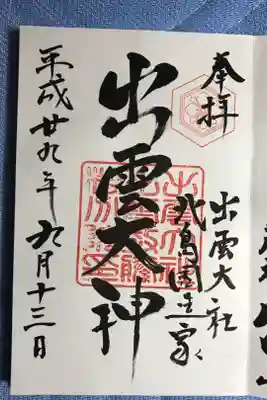 奉拝
出雲大社
北島國造家
出雲大神
平成廿九年九月十三日